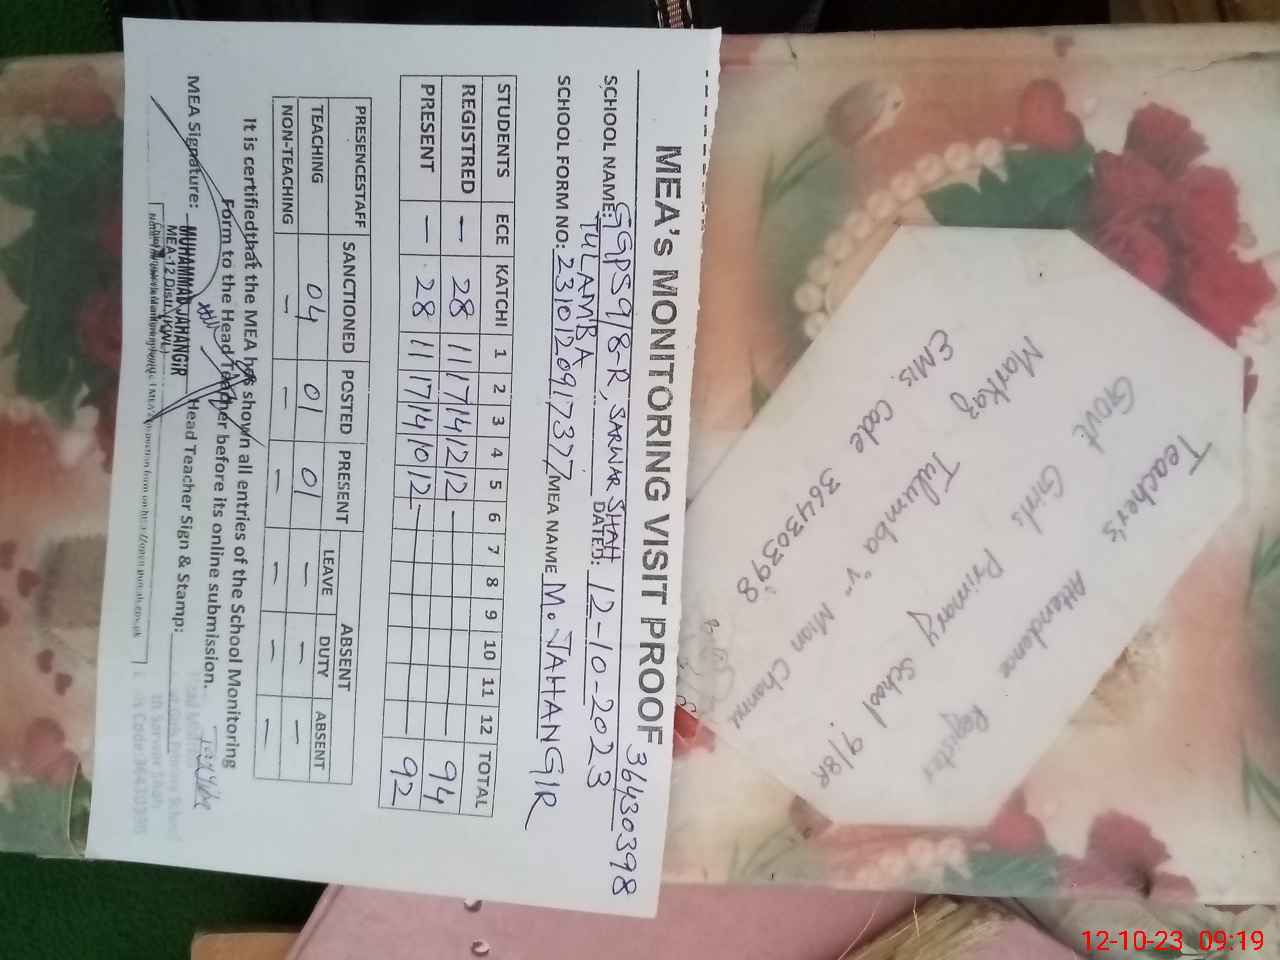 MEA's MONITORING VISIT PROOF 36430398
SCHOOL NAME: GGPS 9/8-R, SARWAR SHAH
TULAMBA DATED: 12-10-2023
SCHOOL FORM NO: 231012091737 MEA NAME M. JAHANGIR
STUDENTS ECE KATCHI 1 2 3 4 5 6 7 8 9 10 11 12 TOTAL
REGISTRED — 28 11 17 14 12 12 — 94
PRESENT — 28 11 17 14 10 12 — 92
PRESENCESTAFF SANCTIONED POSTED PRESENT ABSENT
LEAVE DUTY ABSENT
TEACHING 04 01 01 — — —
NON-TEACHING — — — — — —
It is certifiedthat the MEA has shown all entries of the School Monitoring
Form to the Head Teacher before its online submission.
MEA Signature: Head Teacher Sign & Stamp:
MUHAMMAD JAHANGIR
MEA-12 Distt. (KWL)
Teacher's Attendance Register
Govt Girls Primary School 9/8R
Markaz Tulumba "v" Mian Channu
EMIS Code 36430398
12-10-23 09:19